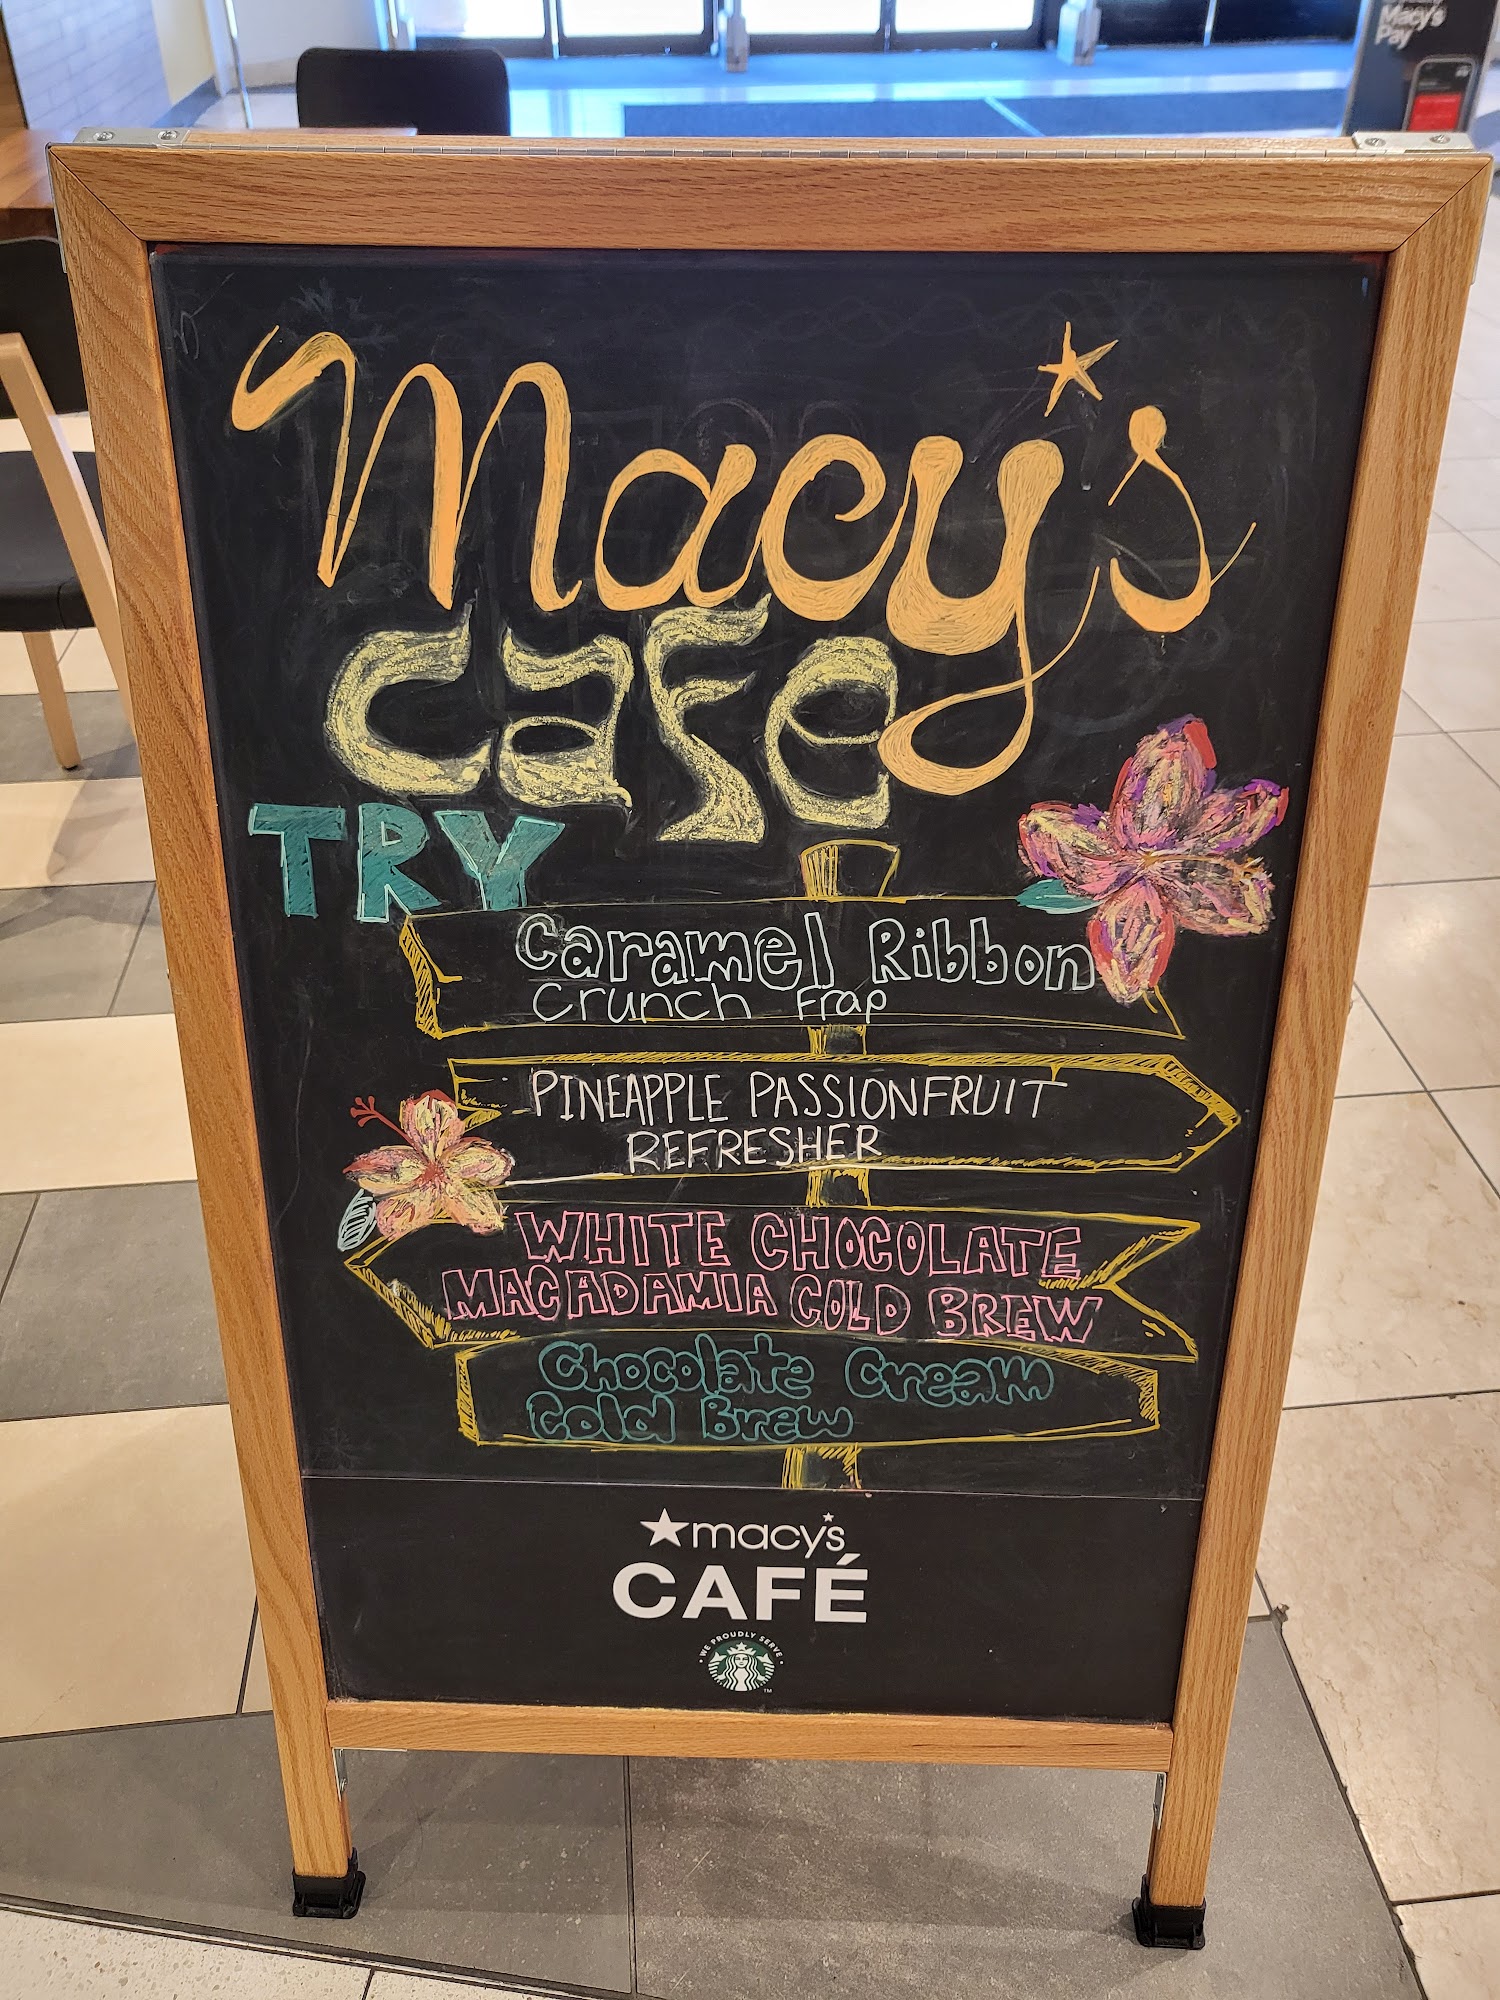 Macy's
Pay
Macy's
Cafe
TRY
Caramel Ribbon
Crunch Frap
PINEAPPLE PASSIONFRUIT
REFRESHER
WHITE CHOCOLATE
MACADAMIA COLD BREW
Chocolate Cream
Cold Brew
macy's
CAFÉ
WE PROUDLY SERVE
TM